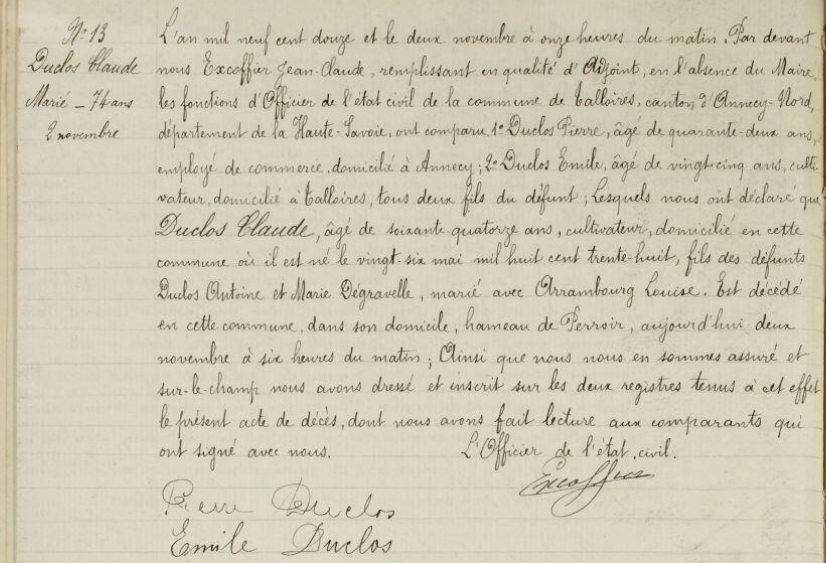 N° 13
Duclos Claude
Marié _ 74 ans
2 novembre
L'an mil neuf cent douze et le deux novembre à onze heures du matin. Par devant
nous Excoffier Jean-Claude, remplissant en qualité d'Adjoint, en l'absence du Maire,
les fonctions d'Officier de l'état civil de la commune de Talloires, canton d'Annecy-Nord,
département de la Haute-Savoie, ont comparu. 1° Duclos Pierre, âgé de quarante-deux ans,
employé de commerce, domicilié à Annecy ; 2° Duclos Emile, âgé de vingt-cinq ans, culti-
vateur, domicilié à Talloires, tous deux fils du défunt ; Lesquels nous ont déclaré que
Duclos Claude, âgé de soixante-quatorze ans, cultivateur, domicilié en cette
commune où il est né le vingt-six mai mil huit cent trente-huit, fils des défunts
Duclos Antoine et Marie Dégravelle, marié avec Arrambourg Louise. Est décédé
en cette commune, dans son domicile, hameau de Perroir, aujourd'hui deux
novembre à six heures du matin ; Ainsi que nous nous en sommes assuré et
sur-le-champ nous avons dressé et inscrit sur les deux registres tenus à cet effet
le présent acte de décès, dont nous avons fait lecture aux comparants qui
ont signé avec nous. L'Officier de l'état civil.
Excoffier
Pierre Duclos
Emile Duclos